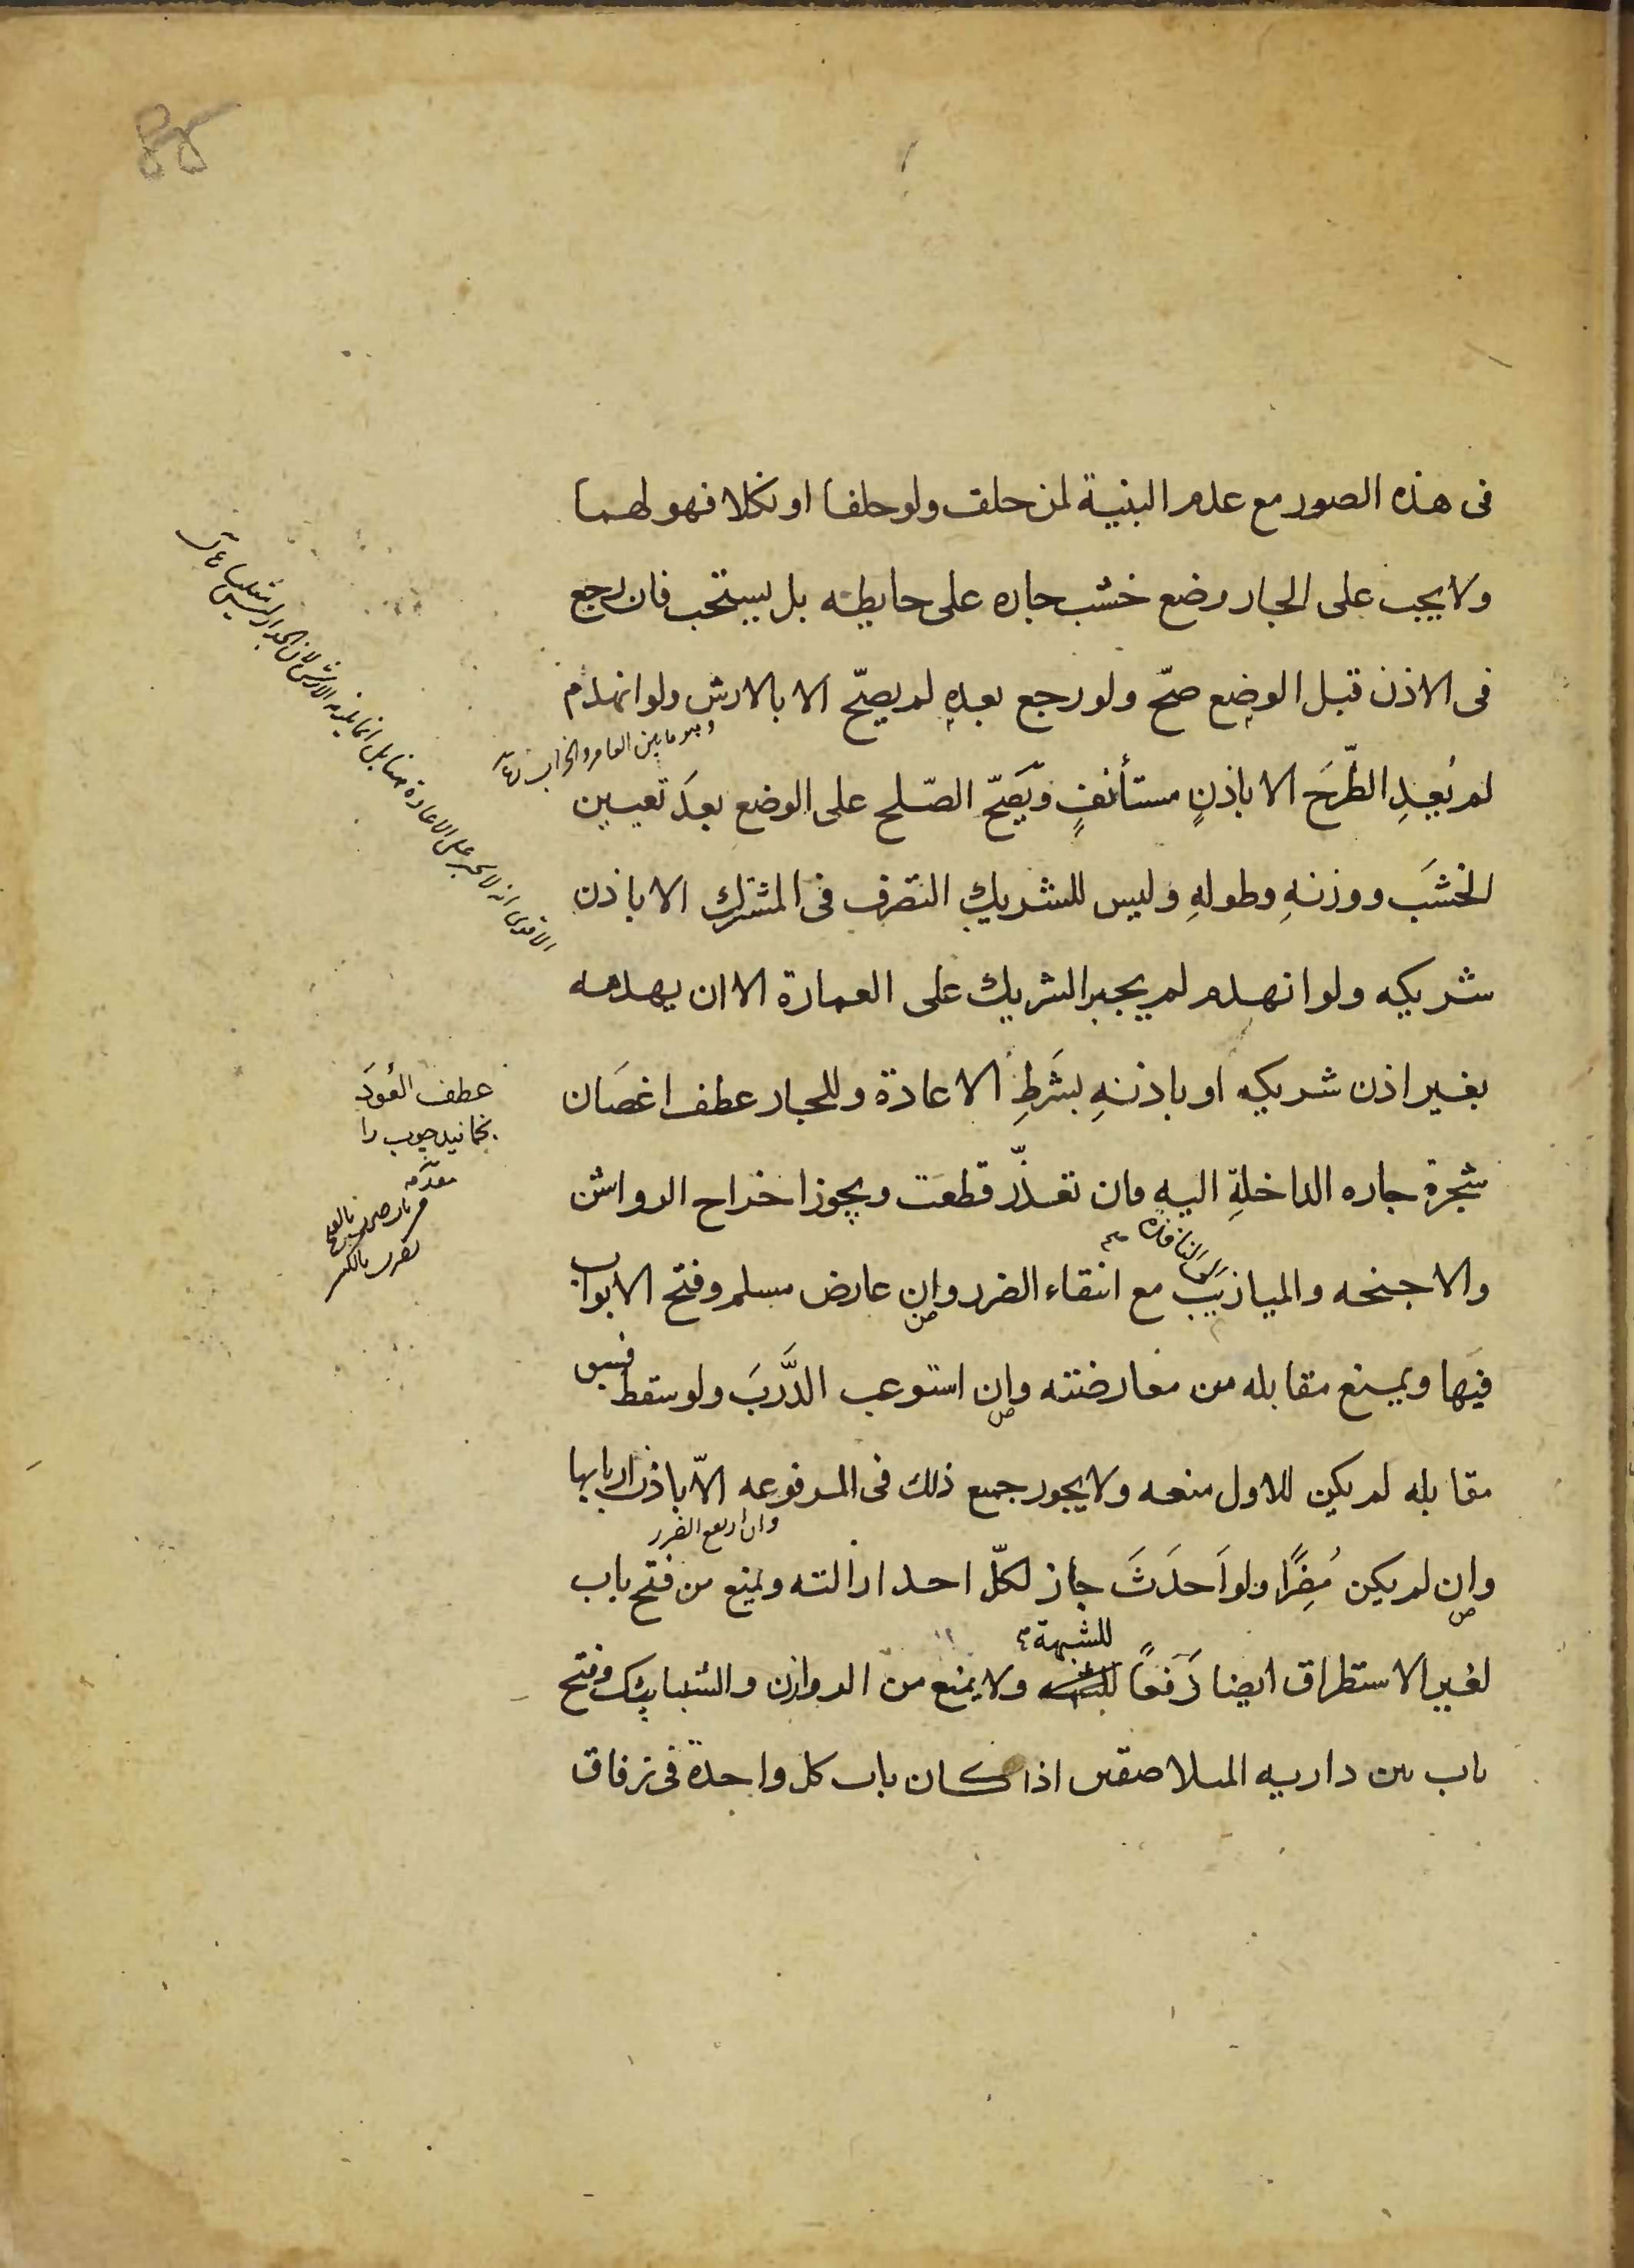 فى هذه الصور مع عدم البنية لمن حلف ولو حلفا او نكلا فهو لهما
ولا يجب على الجار وضع خشب جاره على حايطه بل يستحب فان رجع
فى الاذن قبل الوضع صحّ ولو رجع بعده لم يصحّ الا بالارش ولو انهدم
وهو ما بين العامر والخراب
لم يُعِدِ الطَّرحَ الا باذنٍ مستأنفٍ ويَصِحّ الصّلح على الوضع بعدَ تعيين
الخشَب ووزنهِ وطولهِ وليس للشريكِ التصرف فى المشترك الا باذن
شريكه ولو انهدم لم يجبر الشريك على العمارة الا ان يهدمه
بغير اذن شريكه او باذنهِ بشَرطِ الاعادة وللجار عطف اغصَان
شجرة جاره الداخلةِ اليهِ فان تعذّر قطعَت ويجوز اخراج الرواشن
الى النافذة
والاجنحه والميازيَب مع انتفاء الضرر وان عارض مسلم وفتح الابواب
فيَها ويمنع مقابله من معارضته وان استوعب الدَّربَ ولو سقط فسبق
مقابله لم يكن للاول منعه ولا يجوز جميع ذلك فى المرفوعه الاّ باذن اربابها
وان لم يكن مُضِرًّا ولو اَحدَثَ جاز لكلّ احد ازالته ويمنع من فتح باب
للشبهة
لغير الاستطراق ايضا دَفعاً ولا يمنع من الروازن والشبابيك وفتح
باب بين داريه المتلاصقين اذا كان باب كل واحدة فى زقاق
عطف العُودَ
بخمانيد چوب را